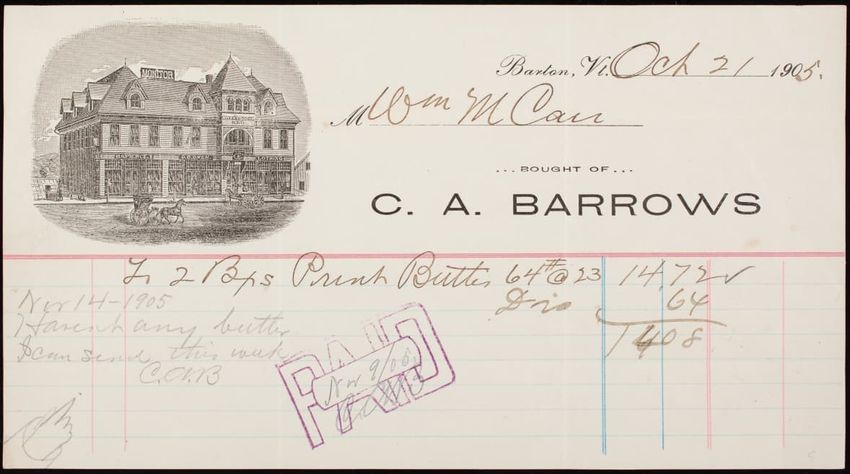 MONITOR
Barton, Vt. Oct 21 1905.
M Wm McCarr
...BOUGHT OF...
C. A. BARROWS
2 Bxs Print Butter 64# @ 23 14.72
64
1408
Nov 14-1905
Havent any butter
I can send this week
C.A.B
PAID
Nov 9/05